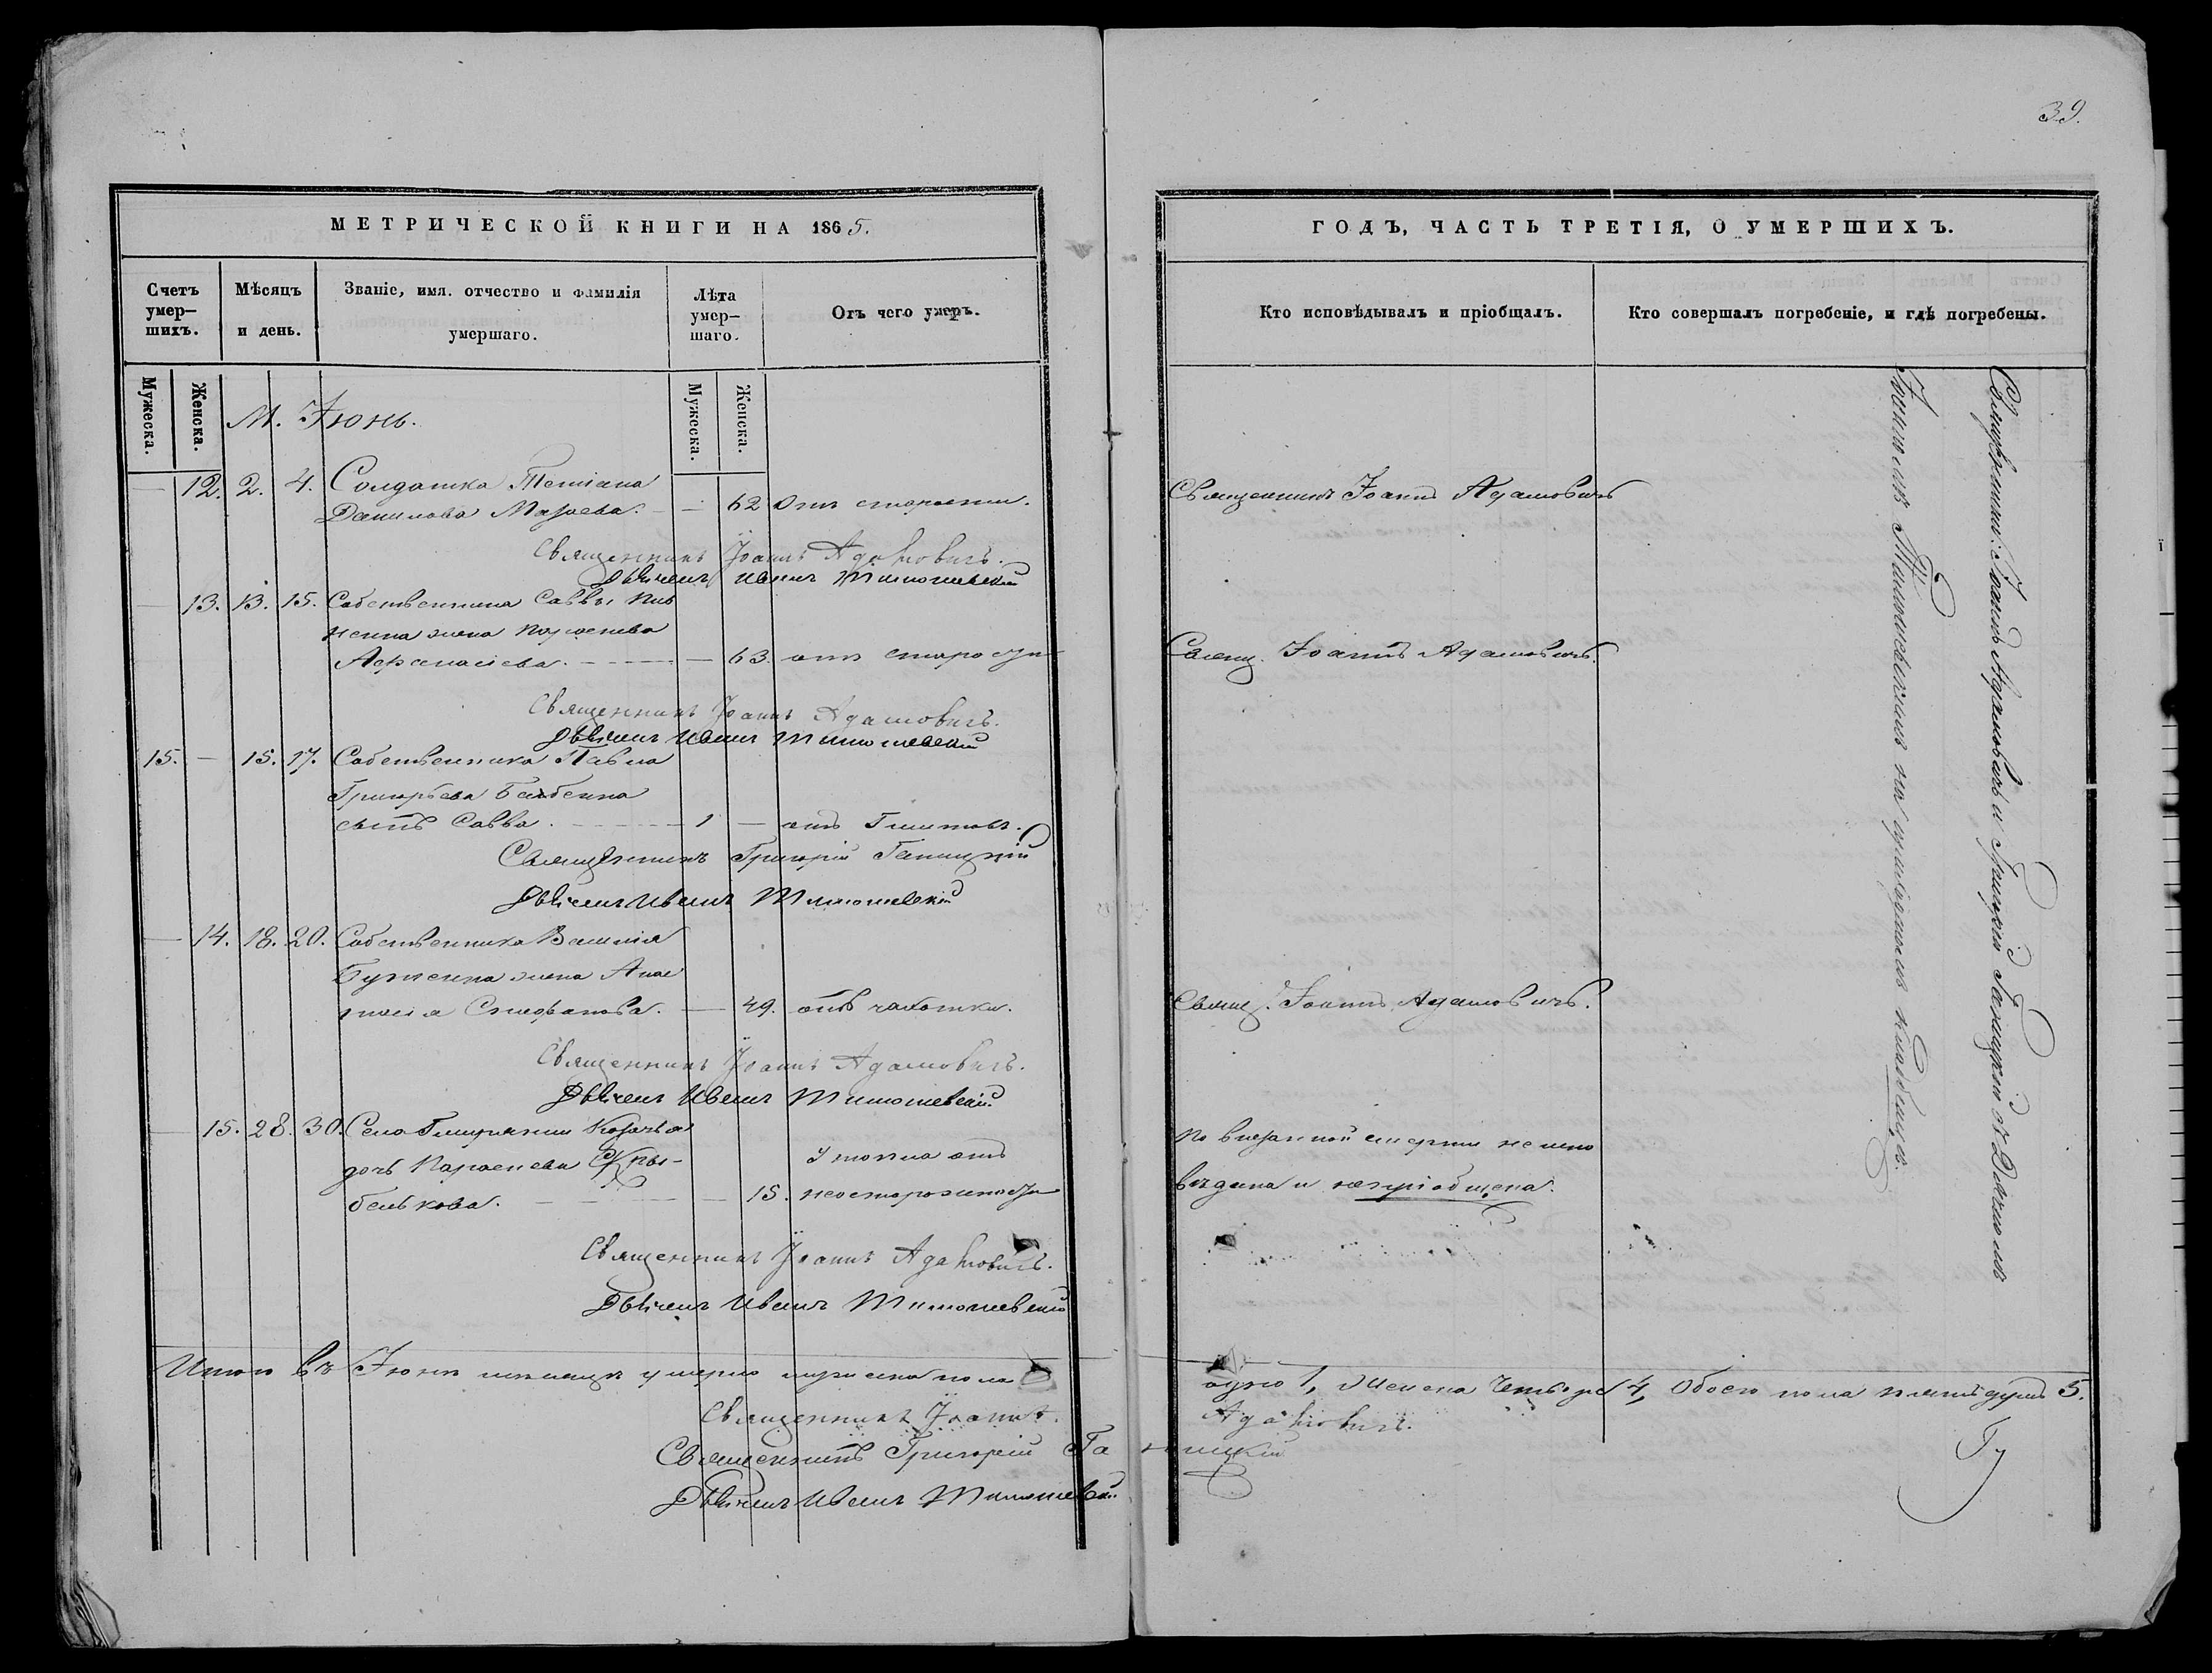 39.
МЕТРИЧЕСКОЙ КНИГИ НА 1865.
Счетъ умер-шихъ.
Мѣсяцъ и день.
Званіе, имя. отчество и фамилія умершаго.
Лѣта умер-шаго.
Отъ чего умеръ.
Мужеска.
Женска.
Мужеска.
Женска.
М. Іюнь.
12. 2. 4. Солдатка Тетіана
Данилова — 62 Отъ старости.
Священникъ Іоаннъ Адамовичъ.
Дьячекъ Иванъ Тимошевскій
13. 13. 15. Собственника Саввы
жена
Афанасіева. — 63. отъ старости
Священникъ Іоаннъ Адамовичъ.
Дьячекъ Иванъ Тимошевскій
15. — 15. 17. Собственника Павла
Григорьева
сынъ Савва. 1 — отъ
Священникъ Григорій Ганицкій
Дьячекъ Иванъ Тимошевскій
— 14. 18. 20. Собственника Василія
жена Анас
тасія Стефанова. — 49. отъ чахотки.
Священникъ Іоаннъ Адамовичъ.
Дьячекъ Иванъ Тимошевскій
15. 28. 30. Села
дочь
— 15. Утопла отъ неосторожности
Священникъ Іоаннъ Адамовичъ.
Дьячекъ Иванъ Тимошевскій
Итого въ Іюнѣ мѣсяцѣ умерло мужеска пола
Священникъ Іоаннъ
Священникъ Григорій Га
Дьячекъ Иванъ Тимошевскій
ГОДЪ, ЧАСТЬ ТРЕТІЯ, О УМЕРШИХЪ.
Кто исповѣдывалъ и пріобщалъ.
Кто совершалъ погребеніе, и гдѣ погребены.
Священникъ Іоаннъ Адамовичъ
Свящ. Іоаннъ Адамовичъ.
Свящ. Іоаннъ Адамовичъ.
По внезапной смерти не испо
вѣдана и непріобщена.
Священники: Іоаннъ Адамовичъ и Григорій Ганицкій съ Дьячкомъ
Іоанномъ Тимошевскимъ на приходскомъ кладбищѣ.
одно 1, женска четыре 4, Обоего пола пять душъ 5.
Адамовичъ.
ницкій